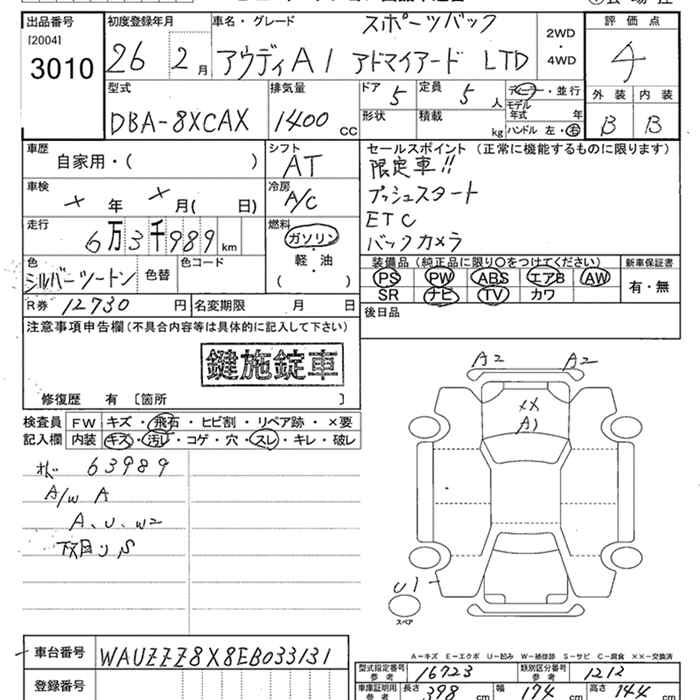 出品番号
[2004]
3010
初度登録年月
26 2 月
車名・グレード
スポーツバック
アウディA1 アドマイアード LTD
2WD
・
4WD
評価点
4
外装 内装
B B
型式
DBA-8XCAX
排気量
1400 cc
ドア
5
定員
5 人
形状
積載
kg
ディーラー・並行
モデル
年式 年
ハンドル 左・右
車歴
自家用・( )
シフト
AT
車検
× 年 × 月( 日)
冷房
A/C
走行
6万3千989 km
燃料
ガソリン
軽・油
( )
色
シルバーツートン
色替
色コード
R券 12730 円
名変期限 月 日
セールスポイント(正常に機能するものに限ります)
限定車!!
プッシュスタート
ETC
バックカメラ
装備品(純正品に限り〇をつけてください)
PS PW ABS エアB AW
SR ナビ TV カワ
新車保証書
有・無
後日品
注意事項申告欄(不具合内容等は具体的に記入して下さい)
鍵施錠車
修復歴 有 〔箇所 〕
検査員
記入欄
FW キズ・飛石・ヒビ割・リペア跡・×要
内装 キズ・汚レ・コゲ・穴・スレ・キレ・破レ
63989
A/W A
A、U、W2
下回リS
A2 A2
××
A1
U1
スペア
A-キズ E-エクボ U-凹み W-補修跡 S-サビ C-腐食 ××-交換済
車台番号 WAUZZZ8X8EB033131
登録番号
型式指定番号
参考
16723
類別区分番号
参考
1212
車庫証明用
参考
長さ 398 cm 幅 174 cm 高さ 144 cm